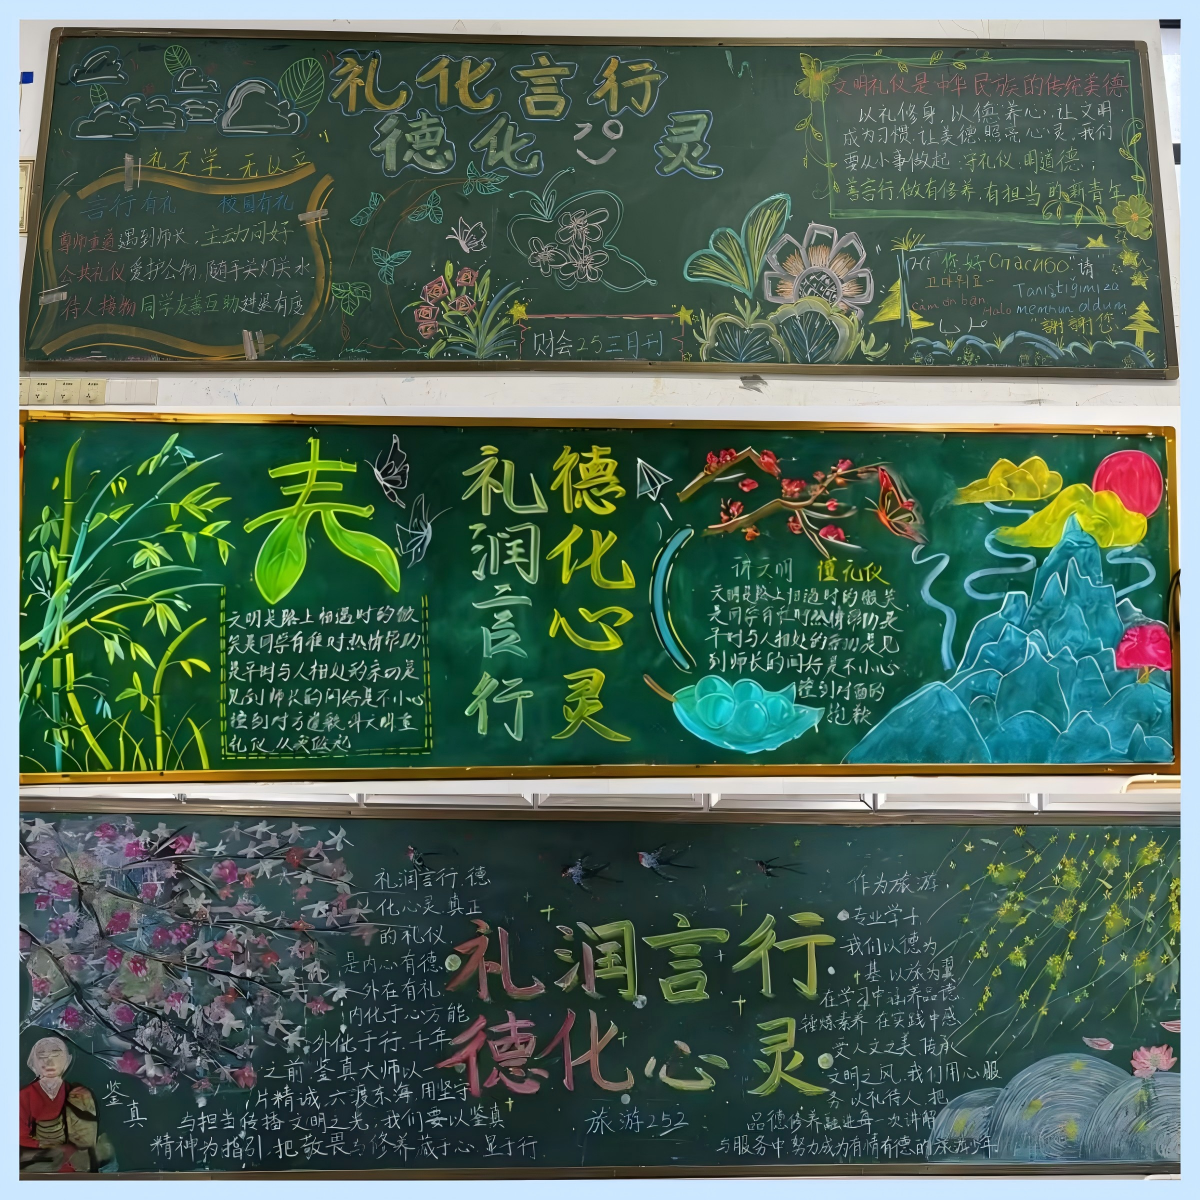 礼化言行
德化心灵
礼不学,无以立
言行有礼 校园有礼
尊师重道 遇到师长,主动问好
公共礼仪 爱护公物,随手关灯关水
待人接物 同学友善互助 进退有度
财会253三月刊
文明礼仪是中华民族的传统美德
以礼修身,以德养心,让文明
成为习惯,让美德照亮心灵,我们
要从小事做起,守礼仪,明道德,
善言行,做有修养,有担当的新青年
Hi 你好 Ciao "请"
고마워요
Tanıştığımıza
Cảm ơn bạn
Halo memnun oldum
謝謝您
春
文明是路上相遇时的微
笑是同学有难时热情帮助
是平时与人相处的亲切是
见到师长的问好是不小心
撞到对方道歉,讲文明重
礼仪,从我做起
礼润言行
德化心灵
讲文明 懂礼仪
文明是路上相遇时的微笑
是同学有难时热情帮助是
平时与人相处的亲切是见
到师长的问好是不小心
撞到对面的
抱歉
礼润言行,德
化心灵,真正
的礼仪,
是内心有德,
外在有礼,
内化于心方能
外化于行,千年
之前,鉴真大师以一
片精诚,六渡东海,用坚守
与担当传播文明之光,我们要以鉴真
精神为指引,把敬畏与修养藏于心,显于行
鉴真
礼润言行
德化心灵
旅游252
作为旅游
专业学子,
我们以德为
基,以旅为翼
在学习中涵养品德
锤炼素养,在实践中感
受人文之美,传承
文明之风,我们用心服
务,以礼待人,把
品德修养融进每一次讲解
与服务中,努力成为有情有德的旅游少年